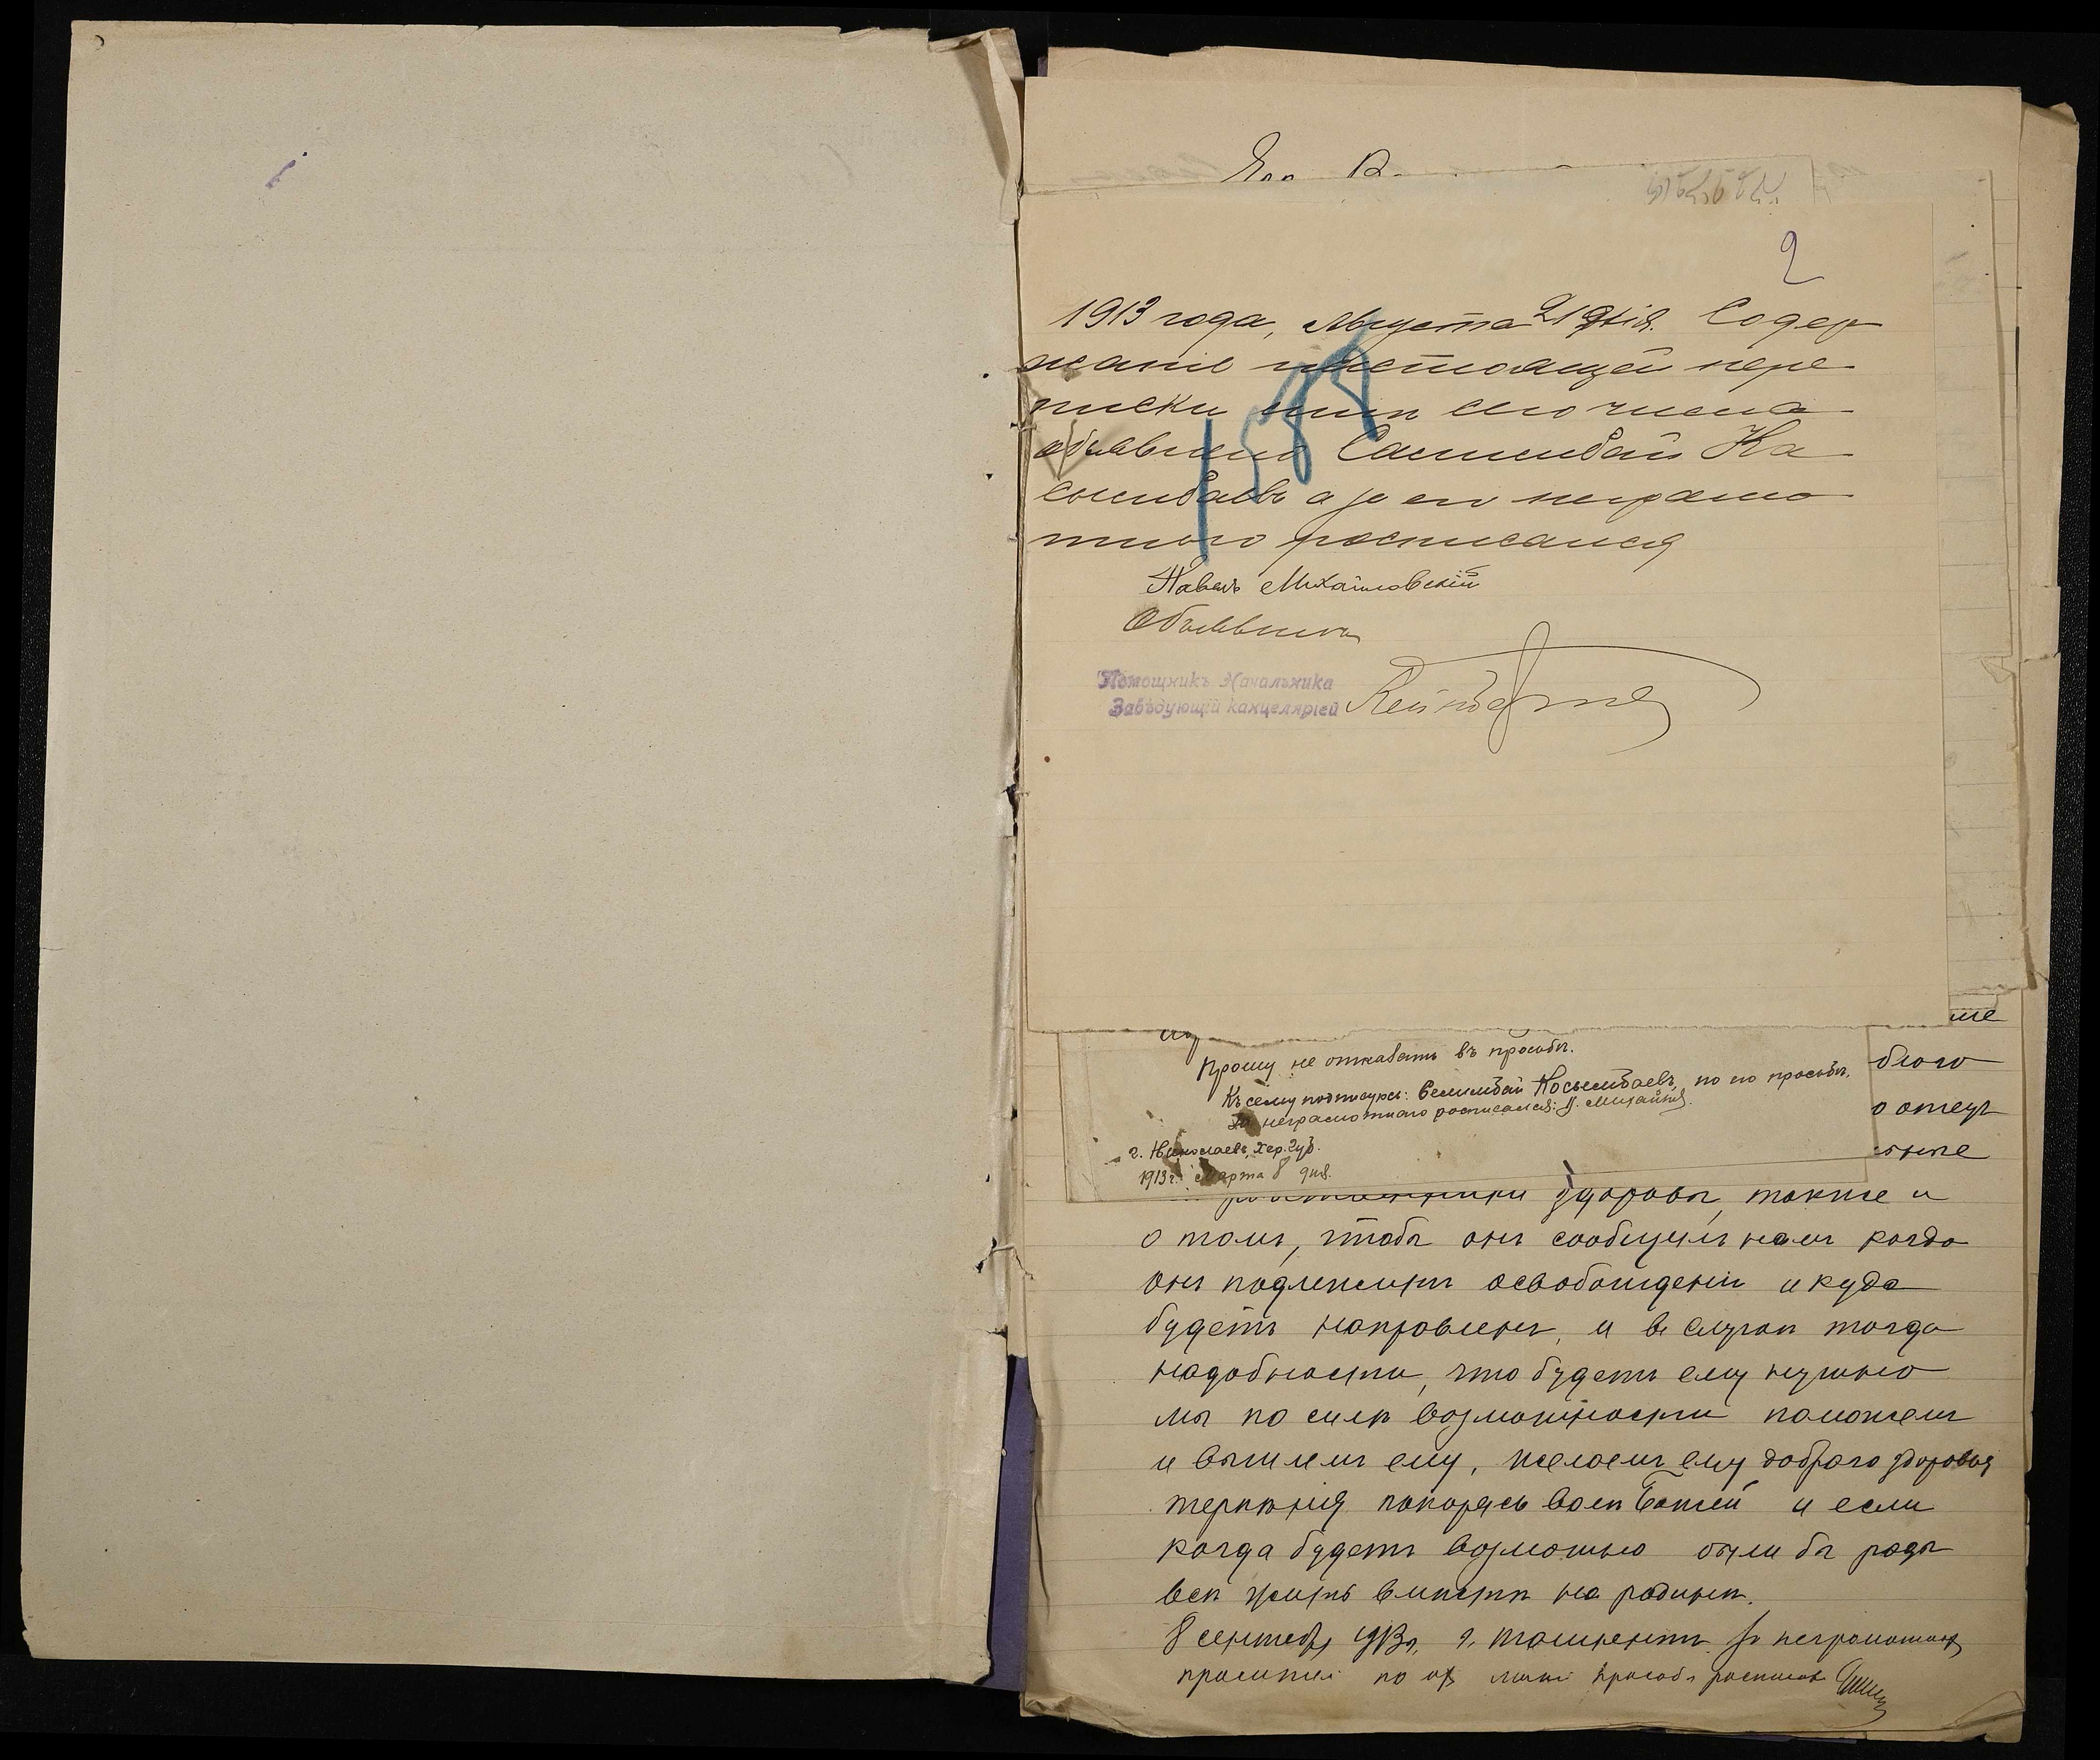 2
1913 года, Августа 21 дня. Содер
жаніе настоящей пере
писки мнѣ сего числа
объявлено Салимбай Ка
сымбаевъ а за его неграмо
тнаго росписался
Павелъ Михайловскій
Объявилъ
Помощникъ Начальника
Завѣдующій канцеляріей
1588
ме
Прошу не отказать въ просьбѣ.
бюго
Къ сему подписуюсь: Салимбай Косымбаевъ, по его просьбѣ,
за неграмотнаго росписался: П. Михайлов.
о отсут
г. Николаевъ, Хер. Губ.
1913 г. Марта 8 дня.
здоровы, также и
о томъ, чтобы онъ сообщилъ намъ когда
онъ подлежитъ освобожденiи и куда
будетъ направленъ, и въ случаѣ тогда
надобности, что будетъ ему нужно
мы по силѣ возможности поможемъ
и вышлемъ ему, желаемъ ему доброго здоровья
терпѣнія покорясь волѣ Божіей и если
когда будетъ возможно были бы рады
всѣ жить вмѣстѣ на родинѣ.
8 сентября 1913 г. г. Ташкентъ за неграмотных
просителе по их личн просьбѣ росписался